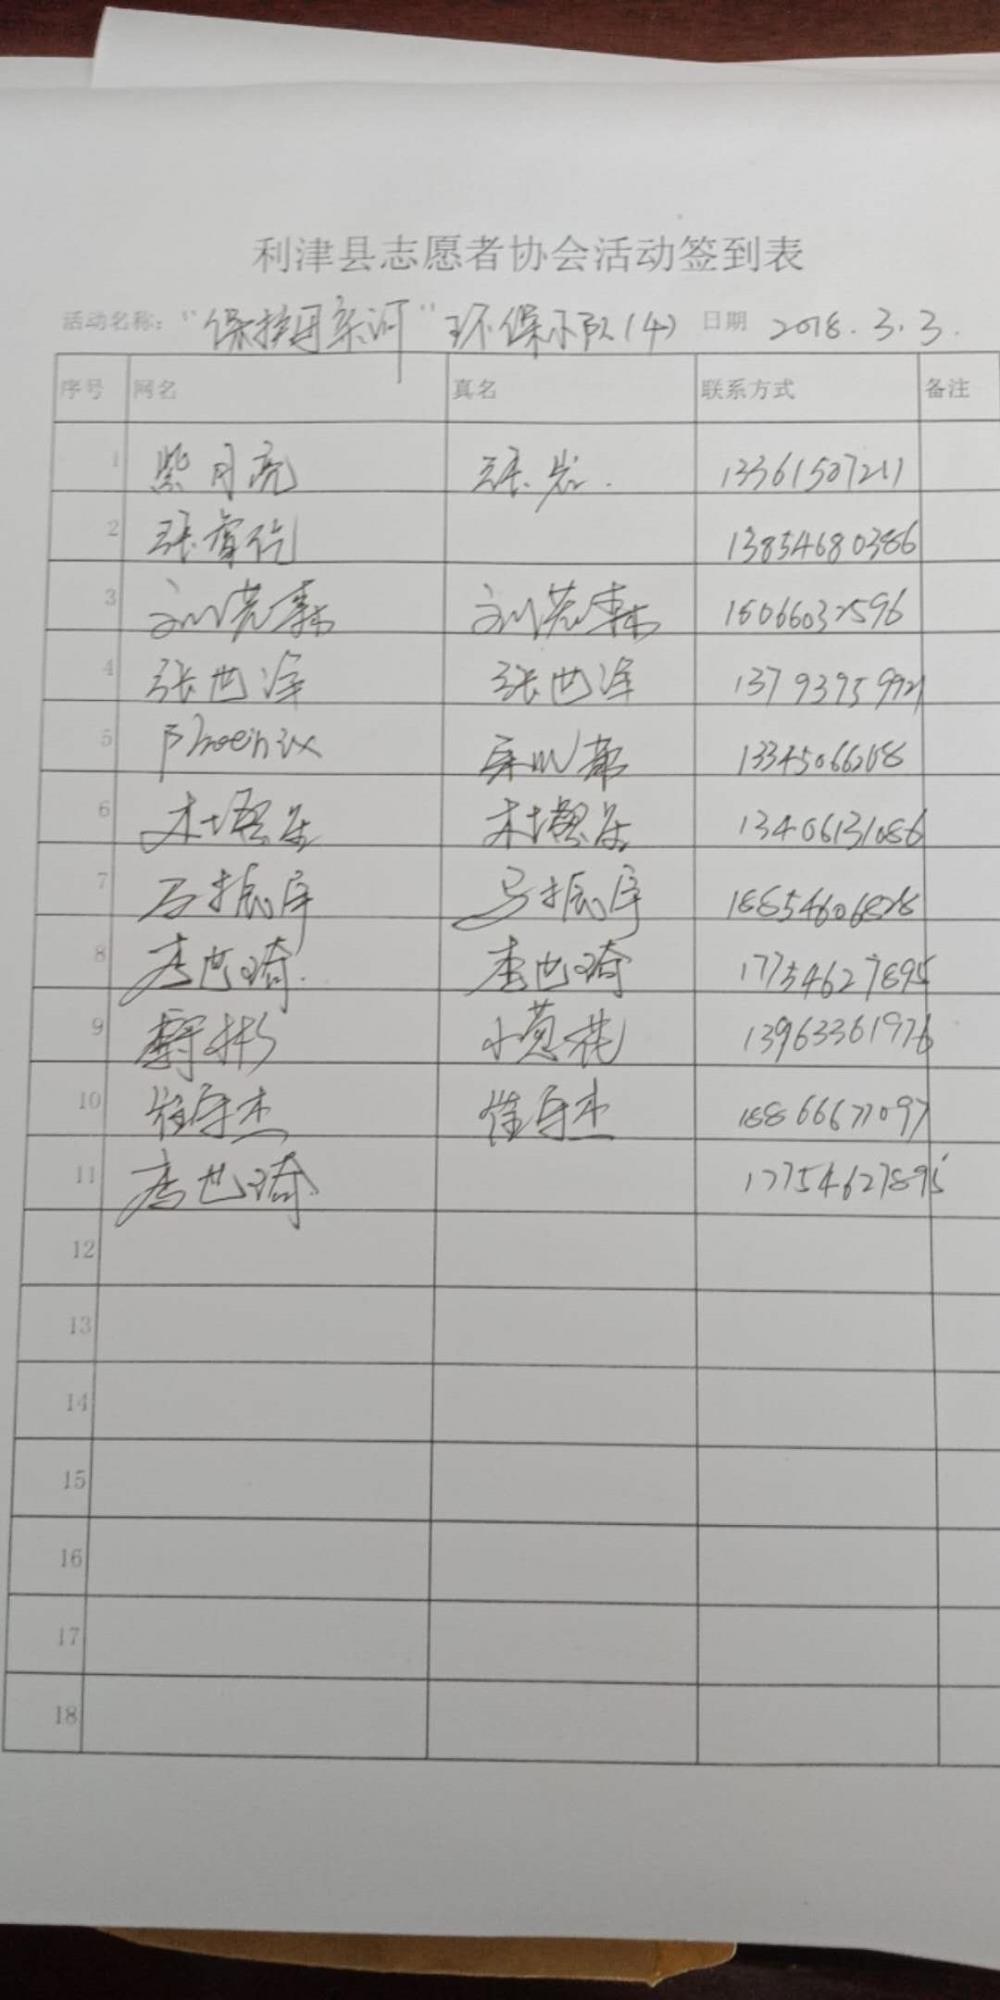 利津县志愿者协会活动签到表
活动名称：“保护母亲河”环保小队（4） 日期 2018.3.3.
序号 网名 真名 联系方式 备注
1 紫月亮 张岩. 13361507211
2 张 13854680386
3 刘 刘 15066032596
4 张世泽 张世泽 13793959921
5 Phoenix 13345066268
6 13406131086
7 马振宇 马振宇 18854606828
8 李世琦. 李世琦 17754627895
9 彬 小黄花 13963361976
10 守杰 守杰 18866671097
11 李世琦. 17754627895
12
13
14
15
16
17
18